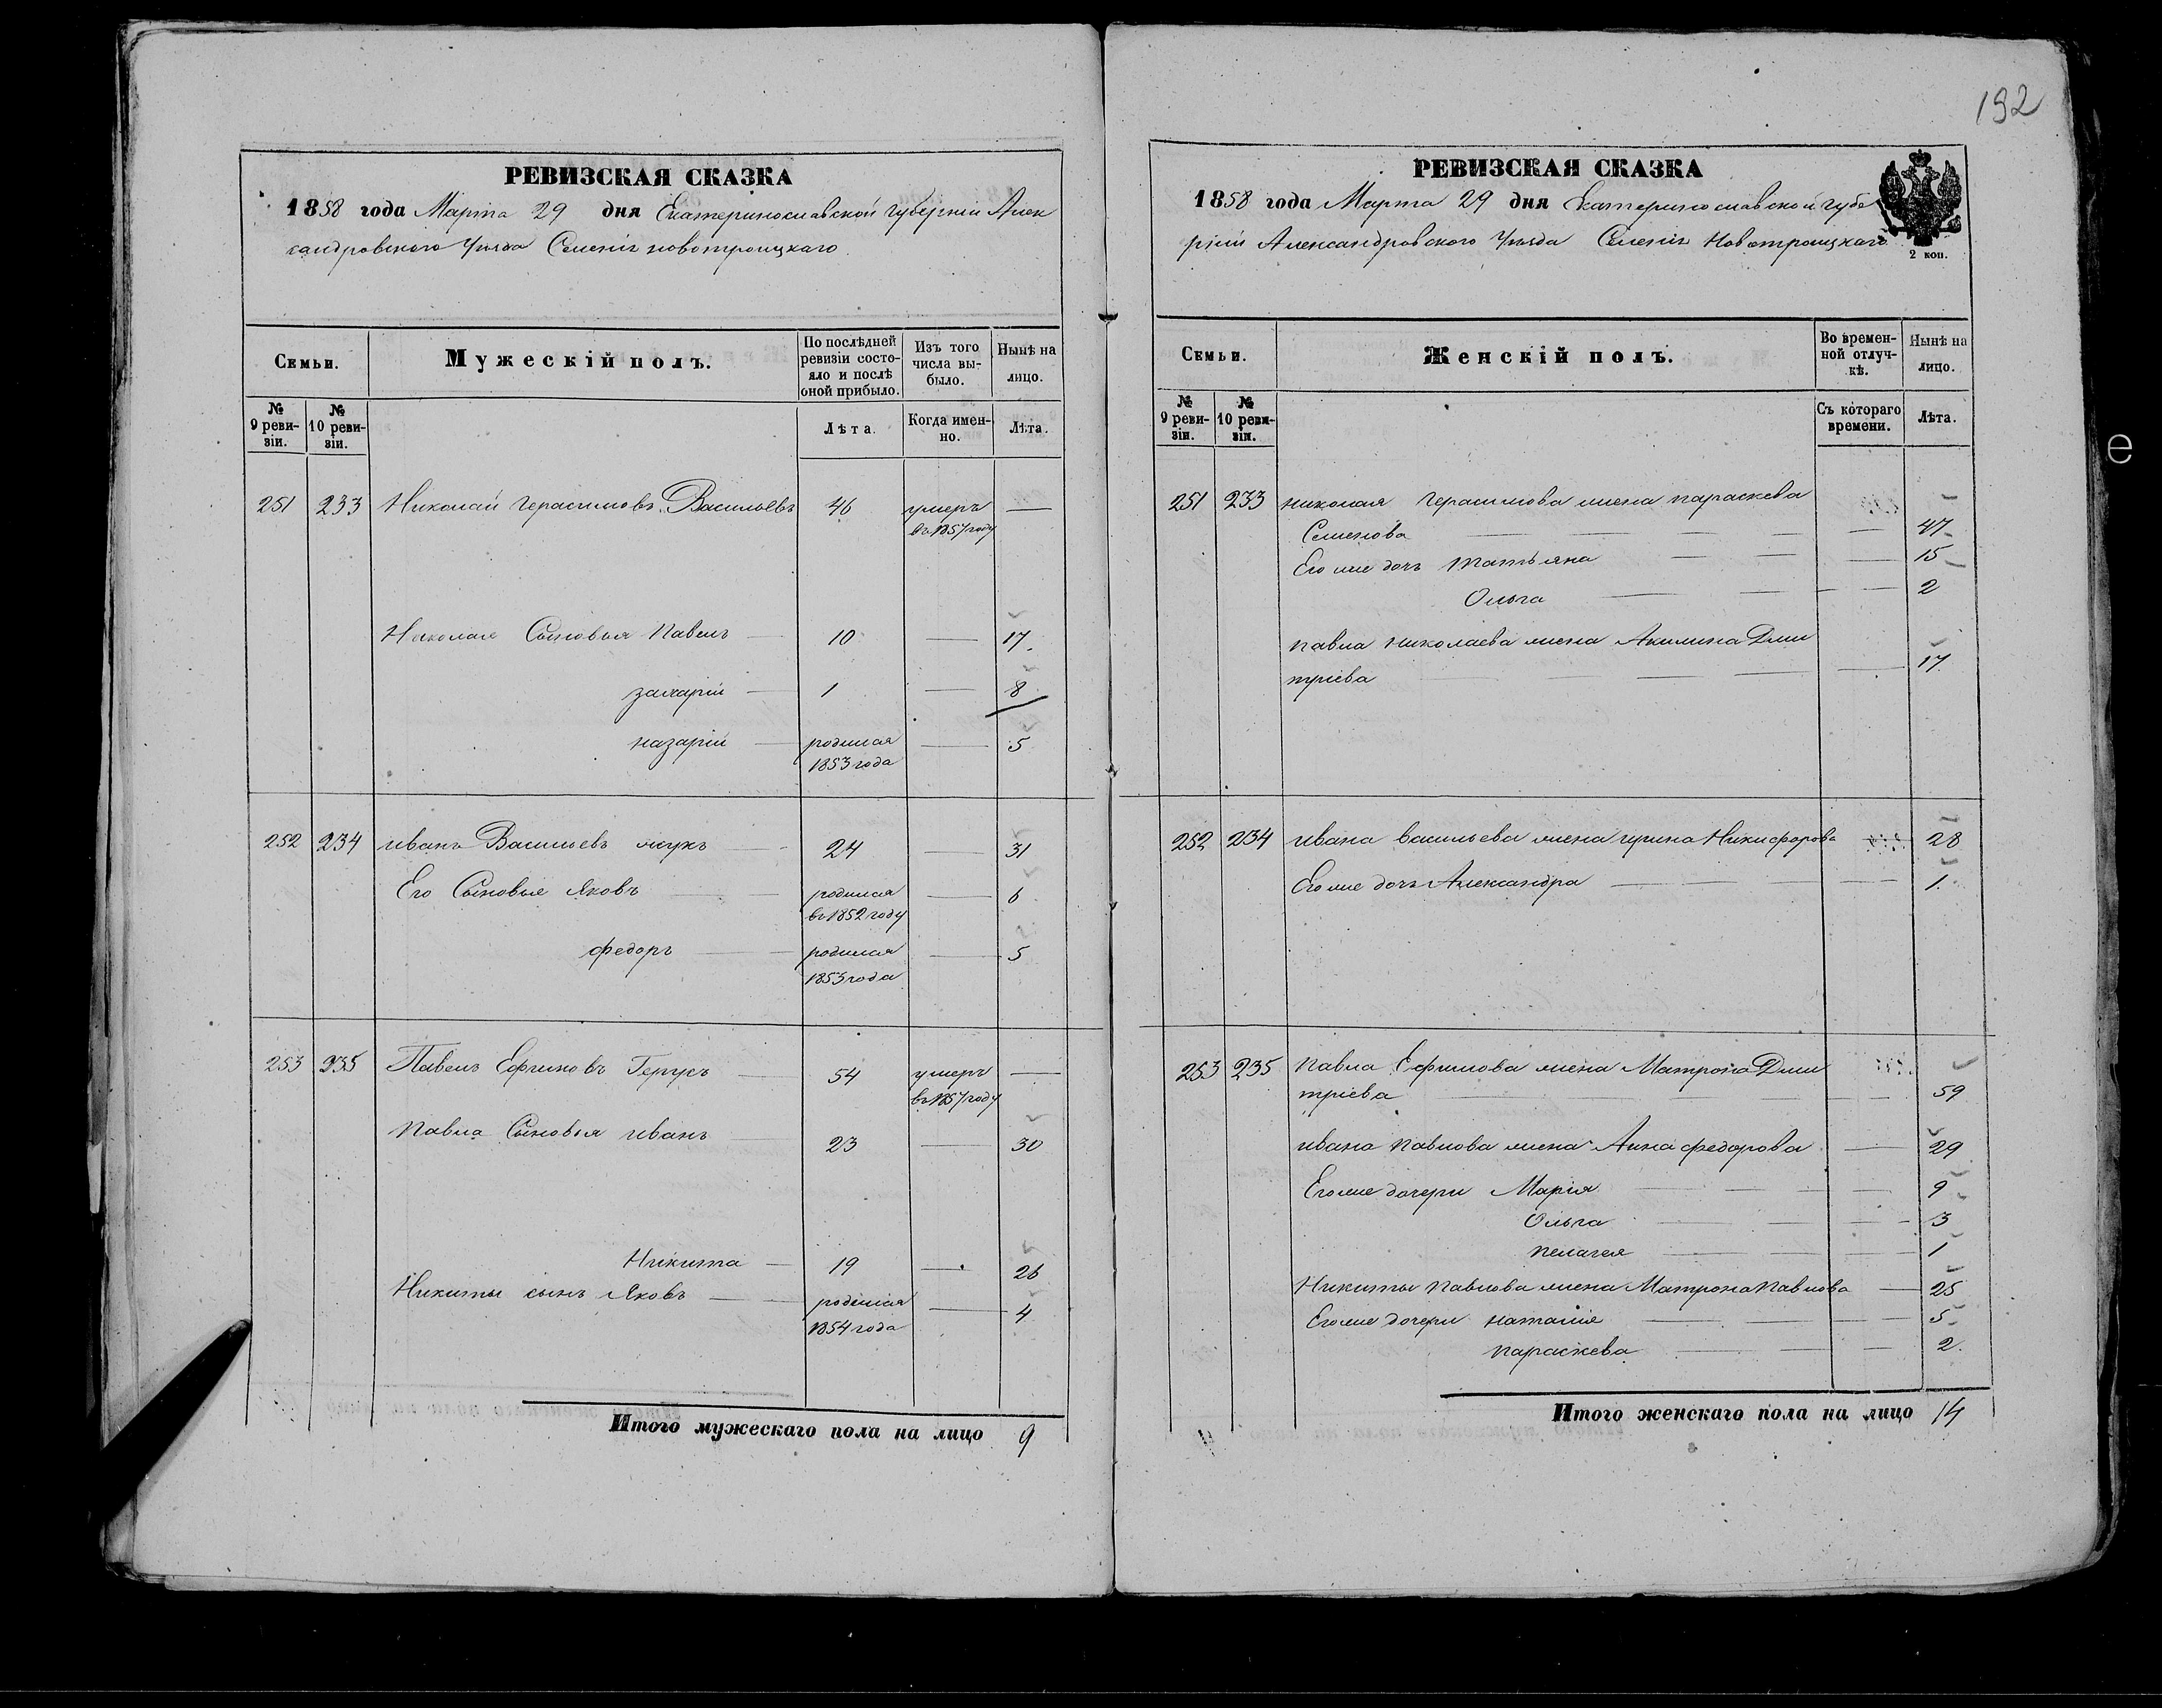 192
РЕВИЗСКАЯ СКАЗКА
1858 года Марта 29 дня Екатеринославской Губерніи Алек
сандровскаго Уѣзда Селенія новотроицкаго
Семьи.
Мужескій полъ.
По послѣдней ревизіи состояло и послѣ оной прибыло.
Изъ того числа выбыло.
Нынѣ на лицо.
№ 9 ревизіи.
№ 10 ревизіи.
Лѣта.
Когда именно.
Лѣта.
251 233 Николай Герасимовъ Васильевъ 46 умеръ —
въ 1857 году
Николая Сыновья Павелъ — 10 — 17
захарій — 1 — 8
назарій — родился — 5
1853 года
252 234 иванъ Васильевъ — 24 — 31
Его Сыновья Яковъ — родился — 6
въ 1852 году
федоръ — родился — 5
1853 года
253 235 Павелъ Ефимовъ — 54 умеръ —
въ 1857 году
Павла Сыновья иванъ — 23 — 30
Никита — 19 — 26
Никиты сынъ Яковъ — родился — 4
1854 года
Итого мужескаго пола на лицо 9
РЕВИЗСКАЯ СКАЗКА
1858 года Марта 29 дня Екатеринославской губе
рніи Александровскаго Уѣзда Селенія Новотроицкаго
2 коп.
Семьи.
Женскій полъ.
Во временной отлучкѣ.
Нынѣ на лицо.
№ 9 ревизіи.
№ 10 ревизіи.
Съ котораго времени.
Лѣта.
251 233 николая Герасимова жена параскева
Семенова — — 47
Его же дочь татьяна — — 15
Ольга — — 2
павла николаева жена Акилина Дми
тріева — — 17
252 234 ивана васильева жена ирина Никифорова 28
Его же дочь Александра — — 1
253 235 Павла Ефимова жена Матрона Дми
тріева — — 59
ивана павлова жена Анна федорова — 29
Его же дочери Марія — — 9
Ольга — — 3
пелагея — — 1
Никиты Павлова жена Матрона Павлова — 25
Его же дочери наталія — — 5
параскева — — 2
Итого женскаго пола на лицо 14
е